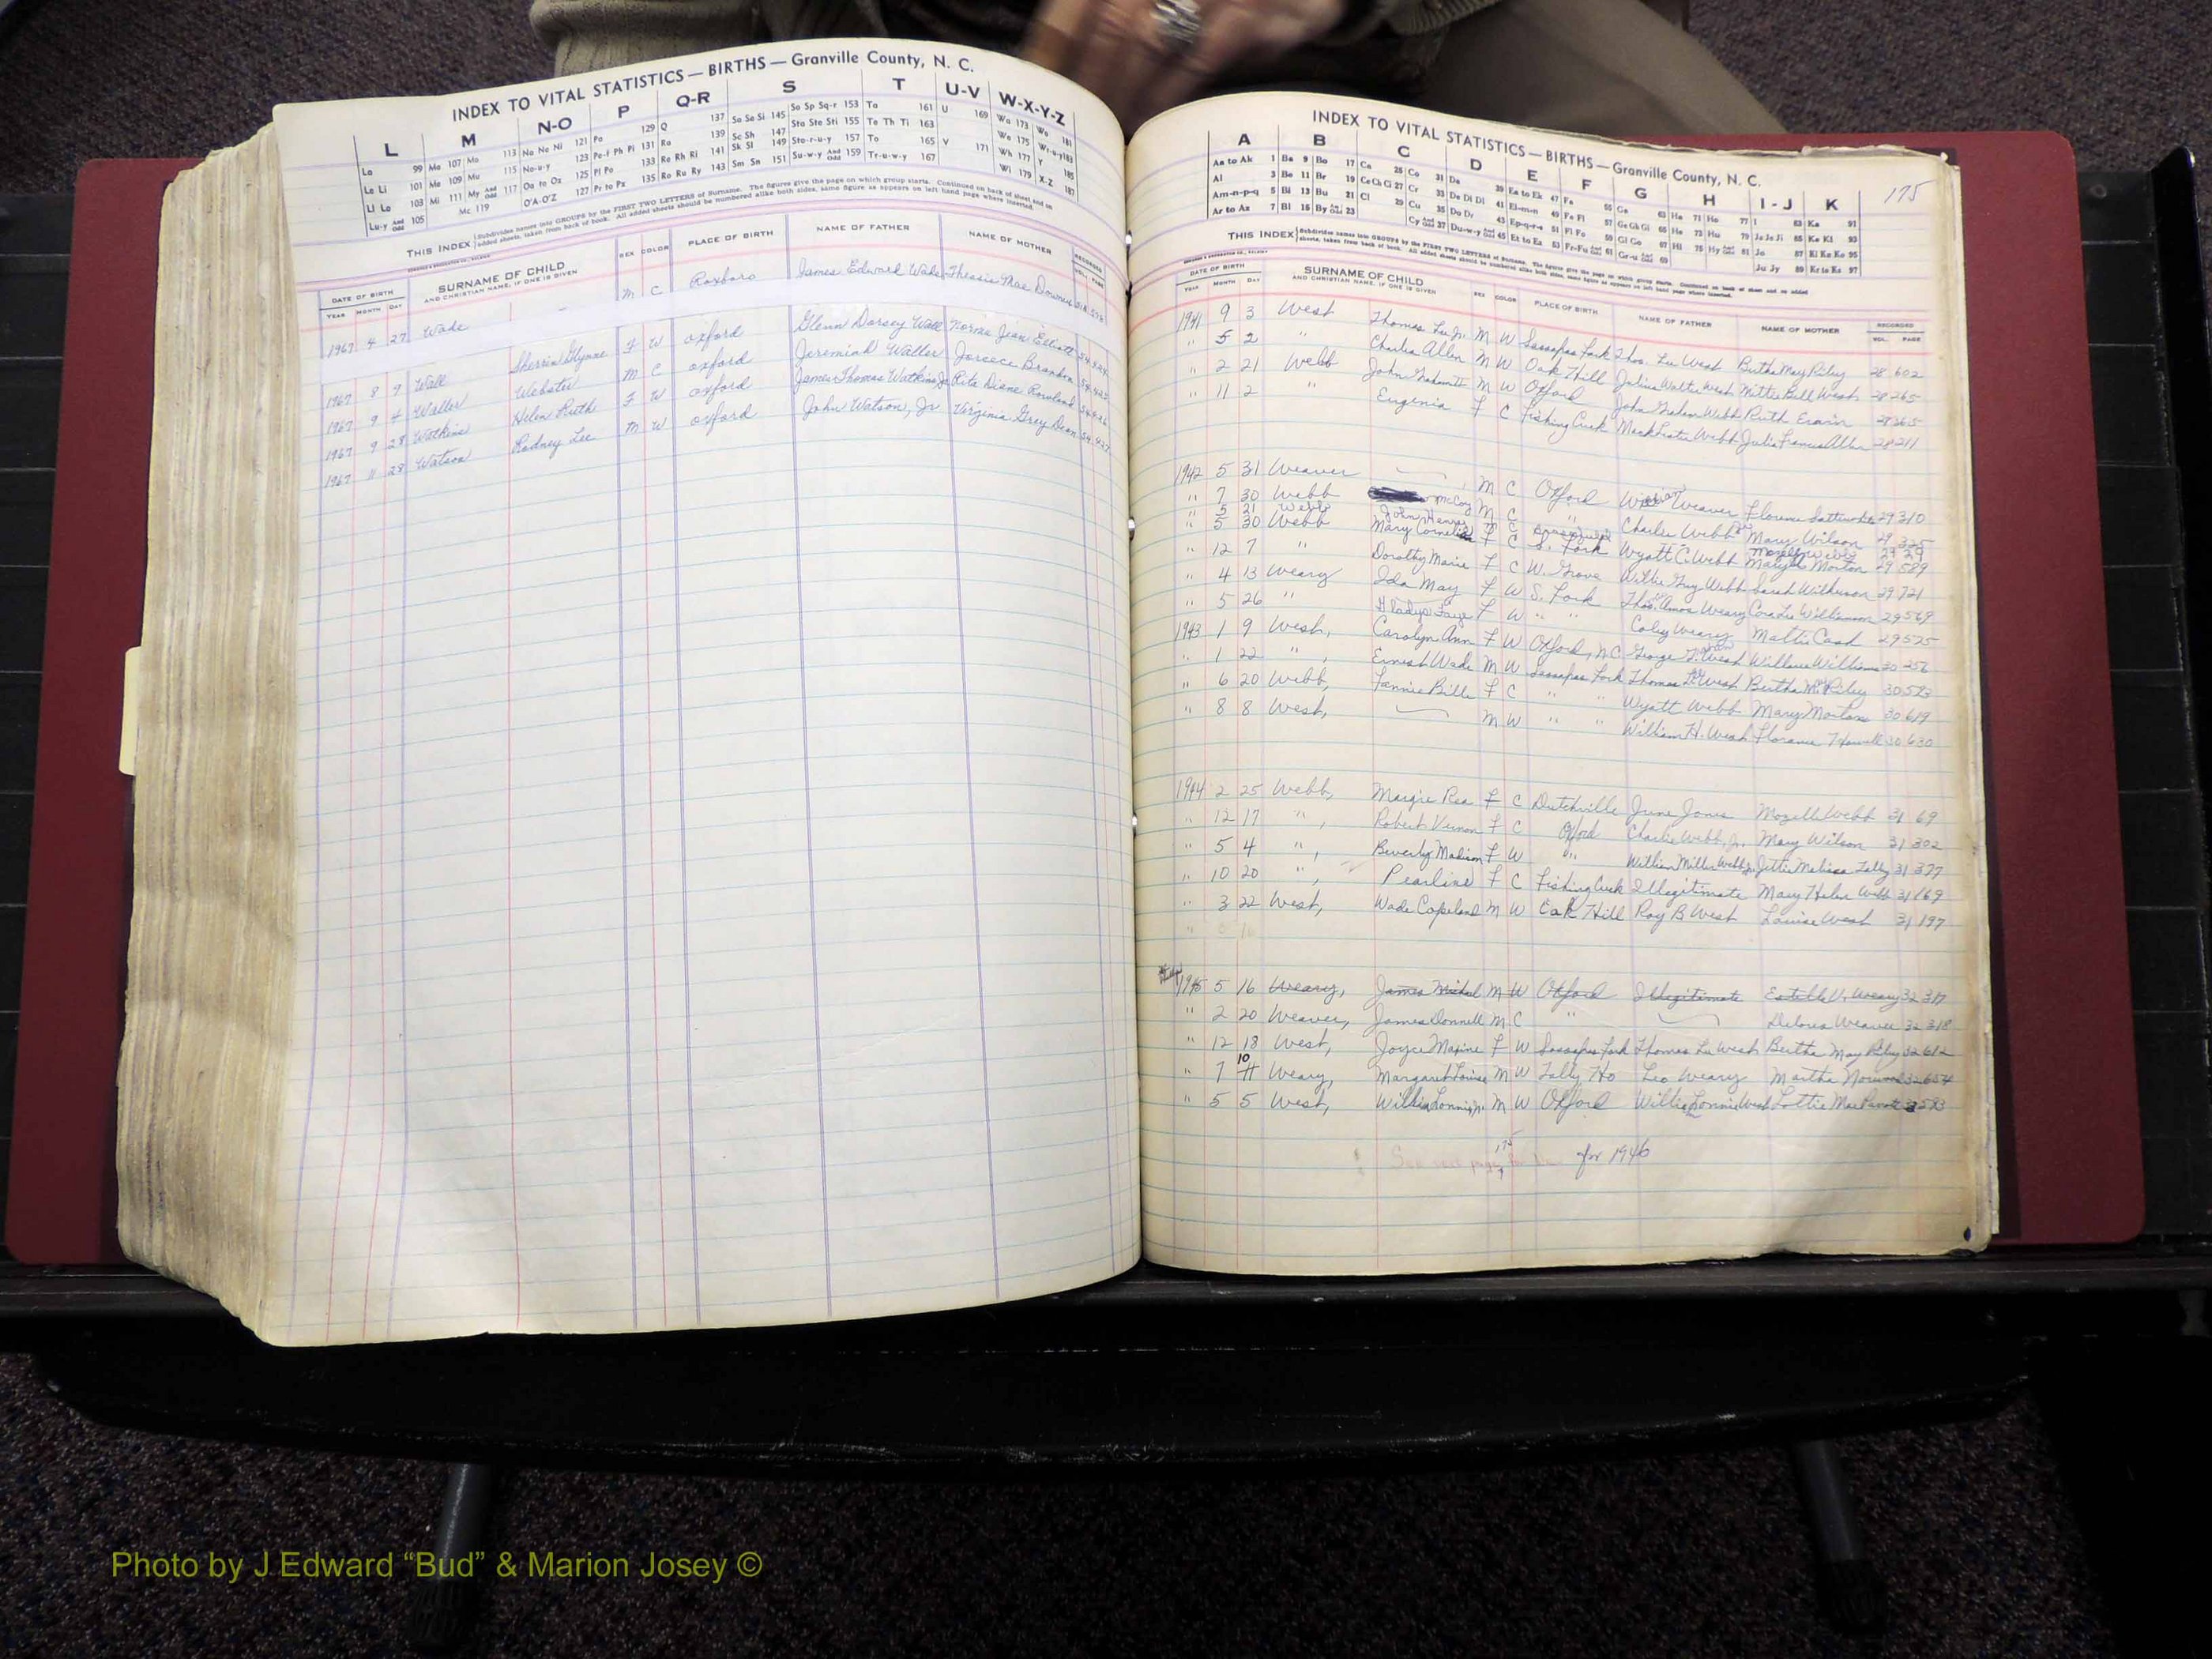 INDEX TO VITAL STATISTICS — BIRTHS — Granville County, N. C.
L M N-O P Q-R S T U-V W-X-Y-Z
La 99 Ma 107 Mo 113 Na Ne Ni 121 Pa 129 Q 137 Sa Se Si 145 So Sp Sq-r 153 Ta 161 U 169 Wa 173 Wo 181
Le Li 101 Me 109 Mu 115 No-u-y 123 Pe-f Ph Pi 131 Ra 139 Sc Sh 147 Sta Ste Sti 155 Te Th Ti 163 We 175 Wr-u-y 183
Ll Lo 103 Mi 111 My And Odd 117 Oa to Oz 125 Pl Po 133 Re Rh Ri 141 Sk Sl 149 Sto-r-u-y 157 To 165 V 171 Wh 177 Y 185
Lu-y And Odd 105 Mc 119 O'A-O'Z 127 Pr to Px 135 Ro Ru Ry 143 Sm Sn 151 Su-w-y And Odd 159 Tr-u-w-y 167 Wi 179 X-Z 187
THIS INDEX Subdivides names into GROUPS by the FIRST TWO LETTERS of Surname. The figures give the page on which group starts. Continued on back of sheet and on
added sheets, taken from back of book. All added sheets should be numbered alike both sides, same figure as appears on left hand page where inserted.
DATE OF BIRTH SURNAME OF CHILD SEX COLOR PLACE OF BIRTH NAME OF FATHER NAME OF MOTHER RECORDED
YEAR MONTH DAY AND CHRISTIAN NAME, IF ONE IS GIVEN VOL. PAGE
1967 4 27 Wade — M C Roxboro James Edward Wade Thessie Mae Downey
1967 8 7 Wall Sherrie Glynne F W oxford Glenn Dorsey Wall Norma Jean Elliott 54,424
1967 9 4 Waller Webster M C oxford Jeremiah Waller Joreece Brandon 54,425
1967 9 28 Watkins Helen Ruth F W oxford James Thomas Watkins Jr Rita Diane Rowland 54,426
1967 11 28 Watson Rodney Lee M W oxford John Watson, Jr Virginia Grey Dean 54,427
INDEX TO VITAL STATISTICS — BIRTHS — Granville County, N. C.
175
A B C D E F G H I - J K
Aa to Ak 1 Ba 9 Bo 17 Ca 25 Co 31 Da 39 Ea to Ek 47 Fa 55 Ga 63 Ha 71 Ho 77 I 83 Ka 91
Al 3 Be 11 Br 19 Ce Ch Ci 27 Cr 33 De Di Dl 41 El-m-n 49 Fe Fi 57 Ge Gh Gi 65 He 73 Hu 79 Je Ji 85 Ke Kl 93
Am-n-p-q 5 Bi 13 Bu 21 Cl 29 Cu 35 Do Dr 43 Ep-q-r-s 51 Fl Fo 59 Gl Go 67 Hi 75 Hy And Odd 81 Jo 87 Kl Kn Ko 95
Ar to Az 7 Bl 15 By And Odd 23 Cy And Odd 37 Du-w-y And Odd 45 Et to Ez 53 Fr-Fu And Odd 61 Gr-u And Odd 69 Ju Jy 89 Kr to Kz 97
THIS INDEX Subdivides names into GROUPS by the FIRST TWO LETTERS of Surname. The figures give the page on which group starts. Continued on back of sheet and on added
sheets, taken from back of book. All added sheets should be numbered alike both sides, same figure as appears on left hand page where inserted.
DATE OF BIRTH SURNAME OF CHILD SEX COLOR PLACE OF BIRTH NAME OF FATHER NAME OF MOTHER RECORDED
YEAR MONTH DAY AND CHRISTIAN NAME, IF ONE IS GIVEN VOL. PAGE
1941 9 3 West Thomas Lu Jr. M W Sassafras Fork Thos. Lu West Bertha May Riley 28 602
" 5 2 " Charles Allen M W Oak Hill Julius Walter West Mittie Bell West 28 265
" 2 21 Webb John M W Oxford John Graham Webb Ruth 28
" 11 2 " Eugenia F C Fishing Creek Mack Webb Julia Frances Allen 28 211
1942 5 31 Weaver — M C Oxford William Weaver Florence 29 310
" 7 30 Webb McCoy M C " Charlie Webb Jr Mary Wilson 29 325
" 5 21 Webb John Henry M C 29 29
" 5 30 Webb Mary Cornelia F C S. Fork Wyatt C. Webb Mary Morton 29 589
" 12 7 " Dorothy Marie F C W. Grove Willie Guy Webb Sarah Wilkerson 29 721
" 4 13 Weary Ida May F W S. Fork Thos. Amos Weary Cora Lee Williamson 29 569
" 5 26 " Gladys Faye F W " " Coley Weary Mattie Cash 29 575
1943 1 9 West, Carolyn Ann F W Oxford, N.C. George T. West Willow Williams 30 256
" 1 22 ", Ernest Wade M W Sassafras Fork Thomas Lee West Bertha May Riley 30 573
" 6 20 Webb, Fannie Bille F C " " Wyatt Webb Mary Morton 30 619
" 8 8 West, — M W " " William H. West Florence Howell 30 630
1944 2 25 Webb, Margie Rea F C Dutchville June Jones Mozelle Webb 31 69
" 12 17 ", Robert Vernon F C Oxford Charlie Webb, Jr. Mary Wilson 31 302
" 5 4 ", Beverly Madison F W " William Miller Webb Jr. Jettie Melissa Tally 31 377
" 10 20 ", Pearline F C Fishing Creek Illegitimate Mary Helen Webb 31 169
" 3 22 West, Wade Copeland M W Oak Hill Roy B West Louise West 31 197
1945 5 16 Weary, James Michal M W Oxford Illegitimate Estelle V. Weary 32 317
" 2 20 Weaver, James Donnell M C " — Delores Weaver 32 318
" 12 18 West, Joyce Maxine F W Sassafras Fork Thomas Lu West Bertha May Riley 32 612
" 7 10 11 Weary, Margaret Louise M W Tally Ho Leo Weary Martha Norwood 32 654
" 5 5 West, Willie Lonnie Jr. M W Oxford Willie Lonnie West Lottie Mae 573
175 for 1946
Photo by J Edward “Bud” & Marion Josey ©